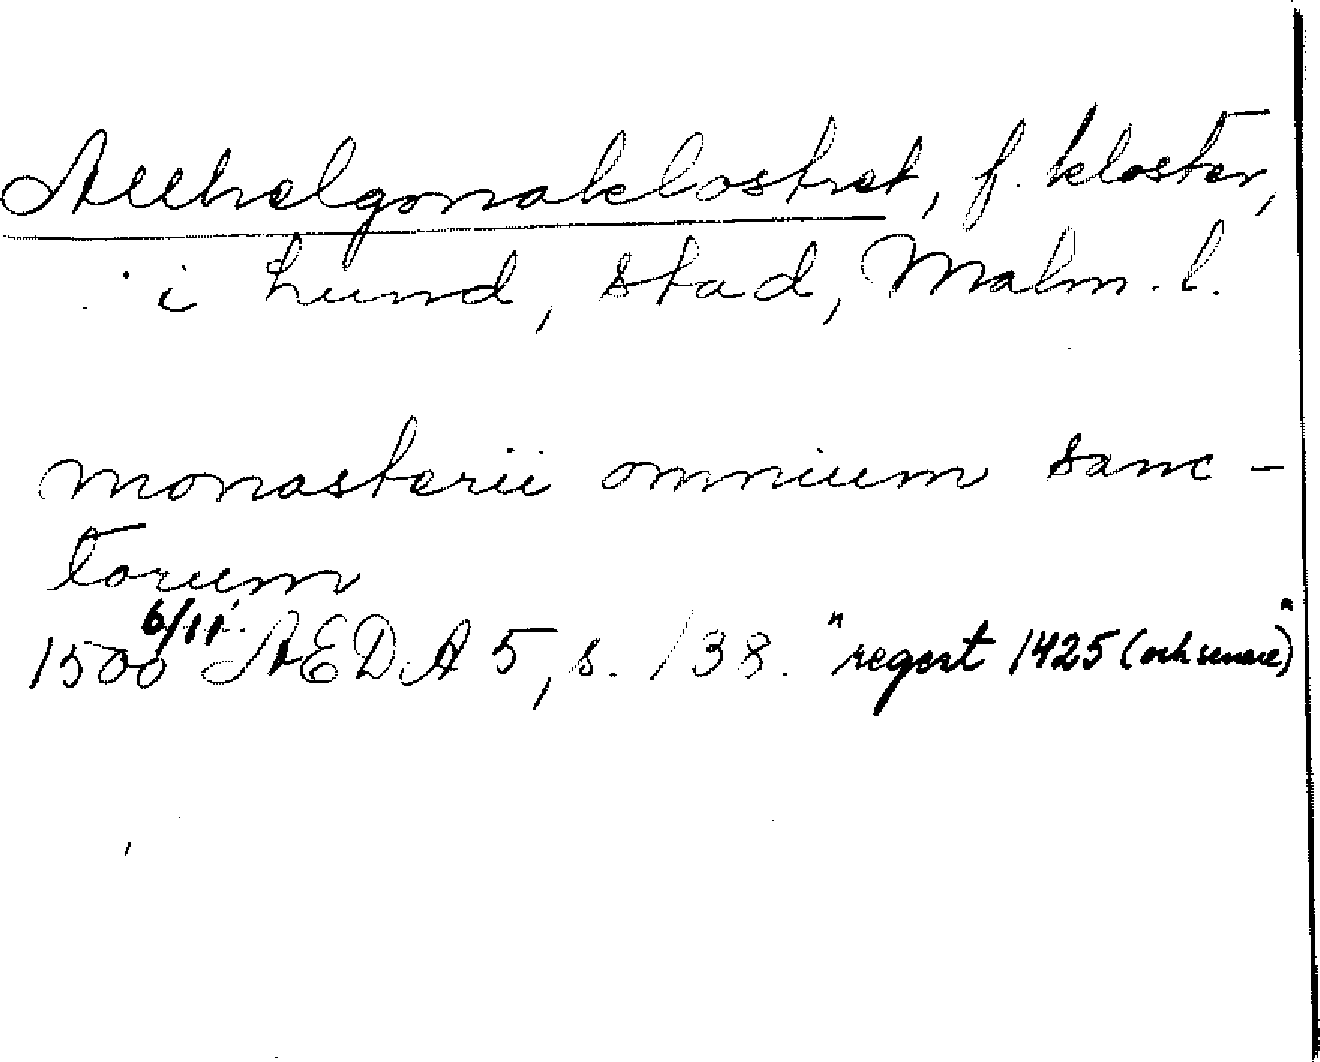 Allhelgonaklostret, f. kloster,
i Lund, stad, Malm. l.
monasterii omnium sanc-
torum
1500 6/11. AEDA 5, s. 138. "regest 1425 (och senare)"